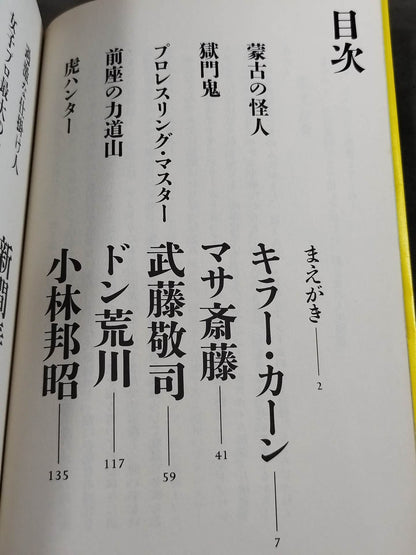 目次
まえがき 2
蒙古の怪人
キラー・カーン 7
獄門鬼
マサ斎藤 41
プロレスリング・マスター
武藤敬司 59
前座の力道山
ドン荒川 117
虎ハンター
小林邦昭 135
過激な仕掛け人
新間寿